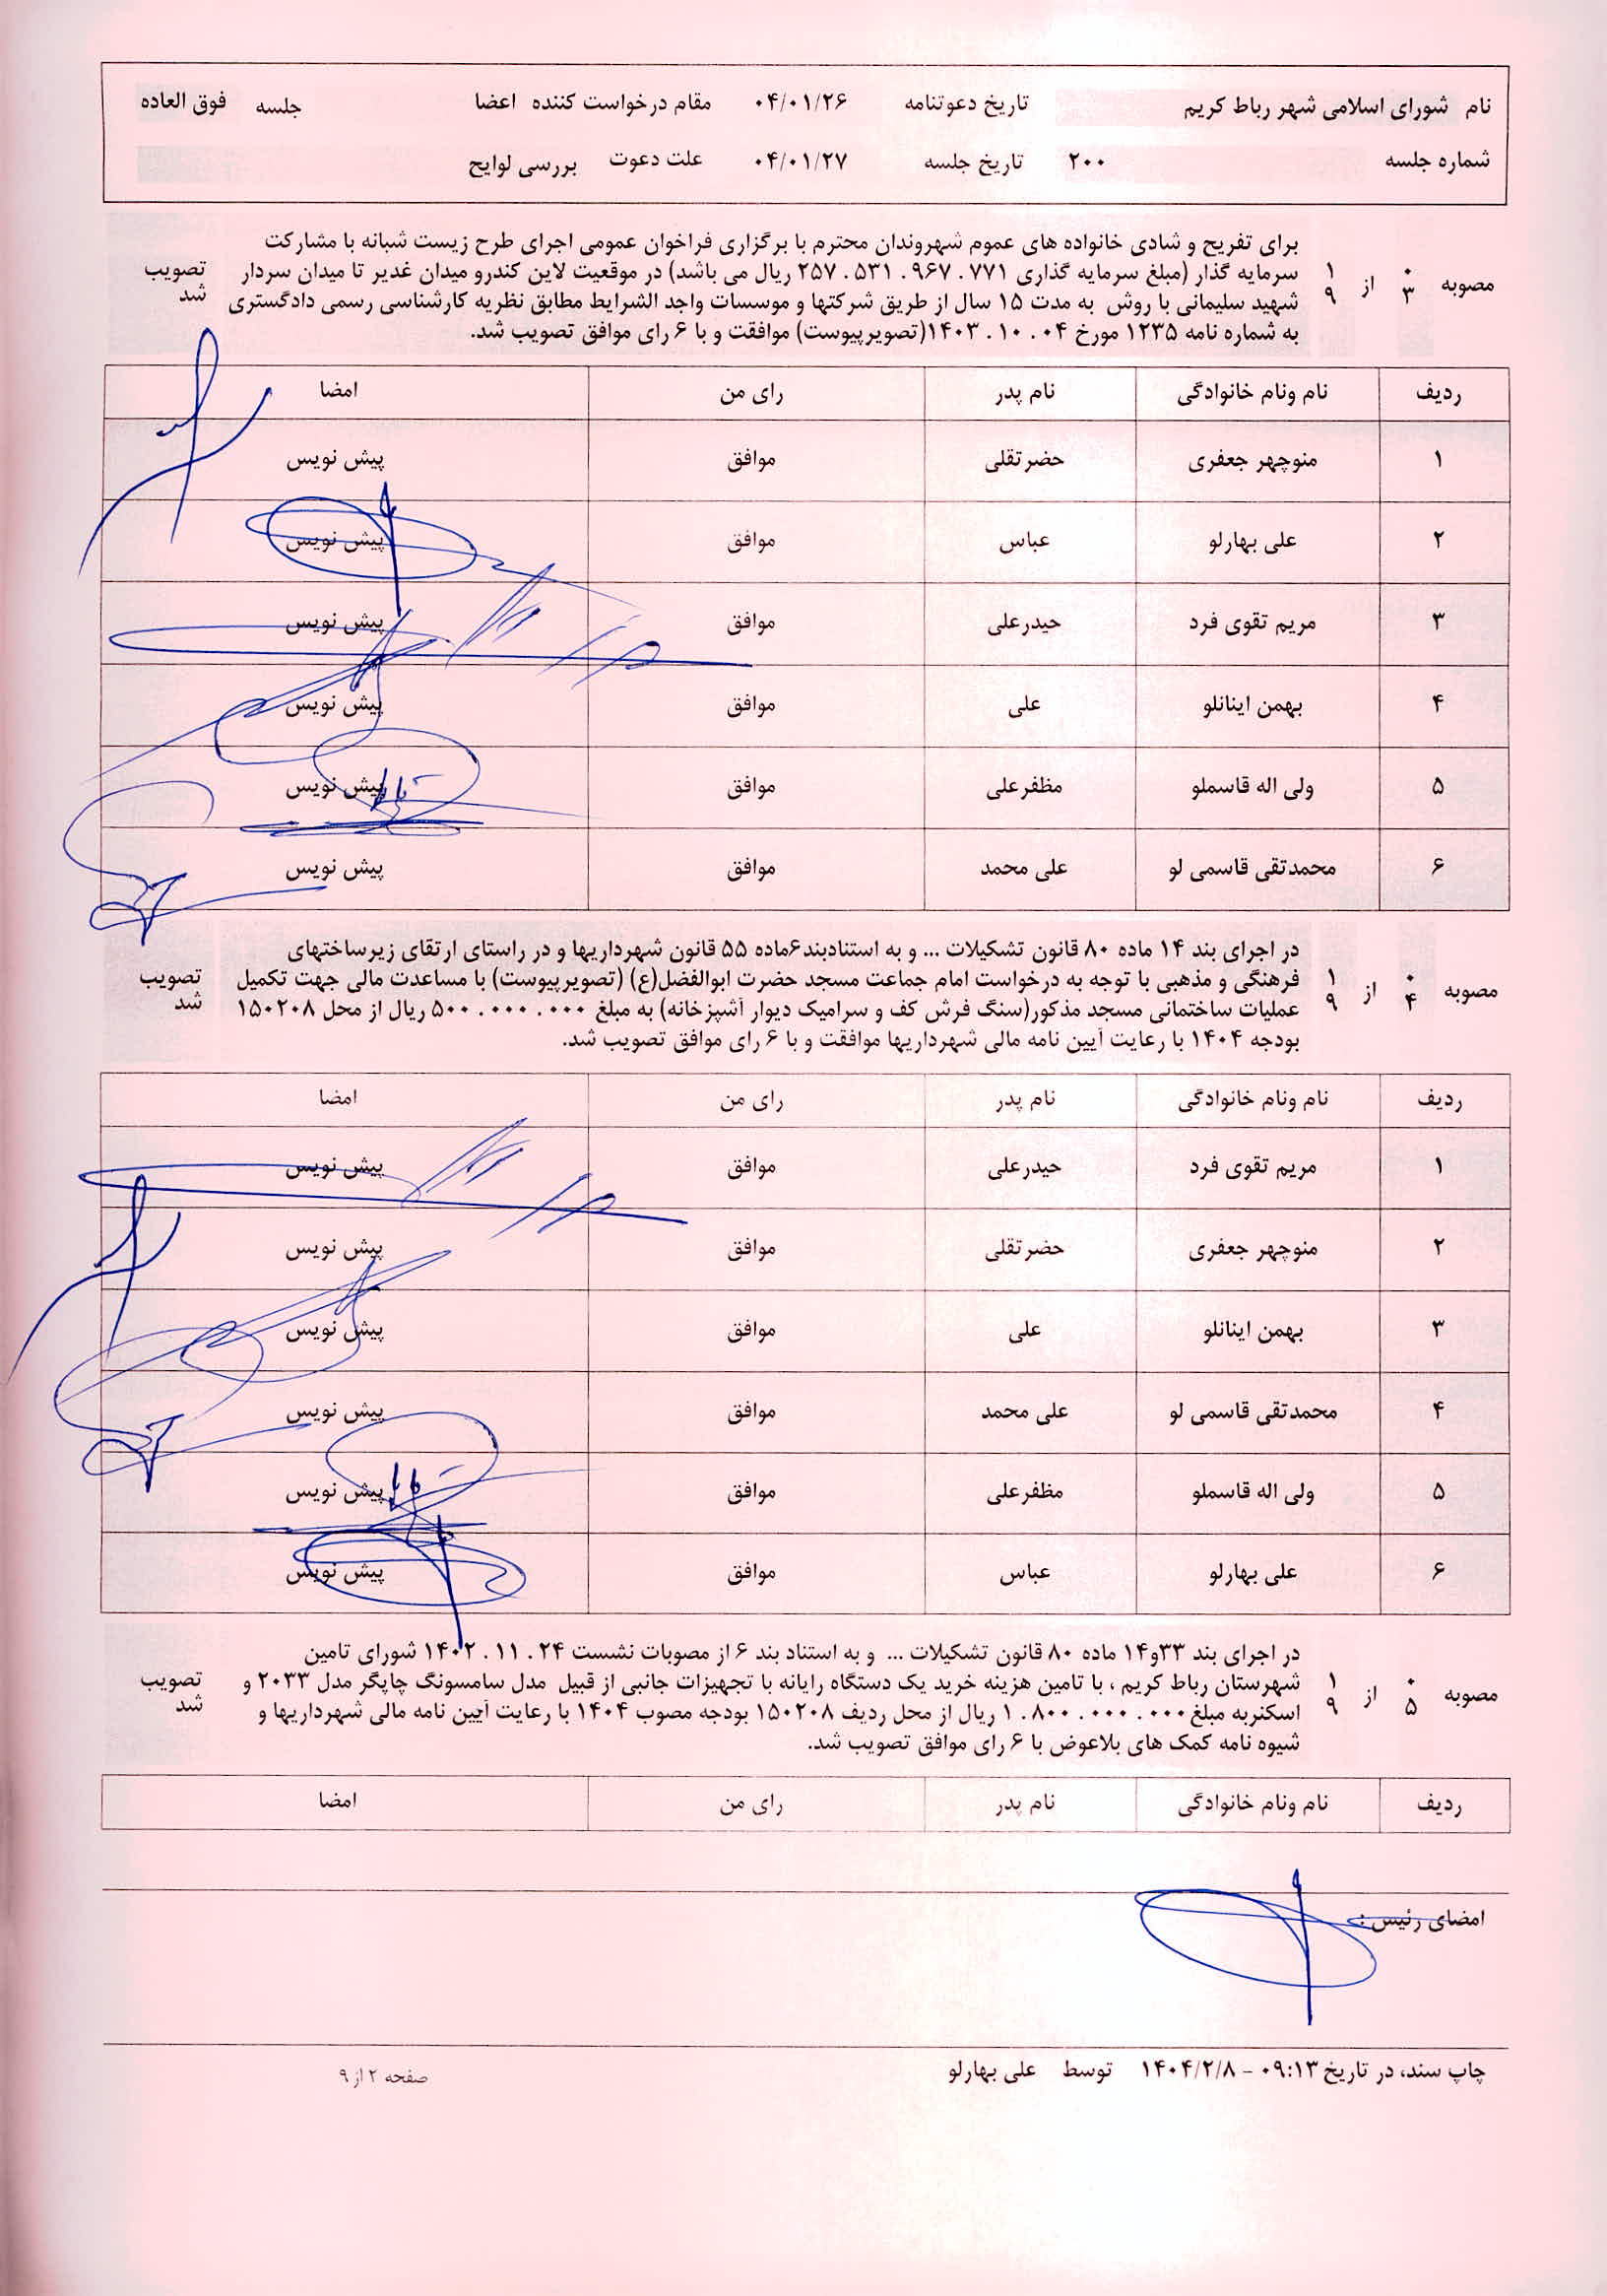 نام شورای اسلامی شهر رباط کریم تاریخ دعوتنامه ۰۴/۰۱/۲۶ مقام درخواست کننده اعضا جلسه فوق العاده
شماره جلسه ۲۰۰ تاریخ جلسه ۰۴/۰۱/۲۷ علت دعوت بررسی لوایح
مصوبه ۰۳ از ۱۹
برای تفریح و شادی خانواده های عموم شهروندان محترم با برگزاری فراخوان عمومی اجرای طرح زیست شبانه با مشارکت
سرمایه گذار (مبلغ سرمایه گذاری ۷۷۱ . ۹۶۷ . ۵۳۱ . ۲۵۷ ریال می باشد) در موقعیت لاین کندرو میدان غدیر تا میدان سردار
شهید سلیمانی با روش به مدت ۱۵ سال از طریق شرکتها و موسسات واجد الشرایط مطابق نظریه کارشناسی رسمی دادگستری
به شماره نامه ۱۲۳۵ مورخ ۰۴ . ۱۰ . ۱۴۰۳(تصویرپیوست) موافقت و با ۶ رای موافق تصویب شد.
تصویب شد
ردیف نام ونام خانوادگی نام پدر رای من امضا
۱ منوچهر جعفری حضرتقلی موافق پیش نویس
۲ علی بهارلو عباس موافق پیش نویس
۳ مریم تقوی فرد حیدرعلی موافق پیش نویس
۴ بهمن اینانلو علی موافق پیش نویس
۵ ولی اله قاسملو مظفرعلی موافق پیش نویس
۶ محمدتقی قاسمی لو علی محمد موافق پیش نویس
مصوبه ۰۴ از ۱۹
در اجرای بند ۱۴ ماده ۸۰ قانون تشکیلات ... و به استنادبند۶ماده ۵۵ قانون شهرداریها و در راستای ارتقای زیرساختهای
فرهنگی و مذهبی با توجه به درخواست امام جماعت مسجد حضرت ابوالفضل(ع) (تصویرپیوست) با مساعدت مالی جهت تکمیل
عملیات ساختمانی مسجد مذکور(سنگ فرش کف و سرامیک دیوار آشپزخانه) به مبلغ ۰۰۰ . ۰۰۰ . ۵۰۰ ریال از محل ۱۵۰۲۰۸
بودجه ۱۴۰۴ با رعایت آیین نامه مالی شهرداریها موافقت و با ۶ رای موافق تصویب شد.
تصویب شد
ردیف نام ونام خانوادگی نام پدر رای من امضا
۱ مریم تقوی فرد حیدرعلی موافق پیش نویس
۲ منوچهر جعفری حضرتقلی موافق پیش نویس
۳ بهمن اینانلو علی موافق پیش نویس
۴ محمدتقی قاسمی لو علی محمد موافق پیش نویس
۵ ولی اله قاسملو مظفرعلی موافق پیش نویس
۶ علی بهارلو عباس موافق پیش نویس
مصوبه ۰۵ از ۱۹
در اجرای بند ۳۳و۱۴ ماده ۸۰ قانون تشکیلات ... و به استناد بند ۶ از مصوبات نشست ۲۴ . ۱۱ . ۱۴۰۲ شورای تامین
شهرستان رباط کریم ، با تامین هزینه خرید یک دستگاه رایانه با تجهیزات جانبی از قبیل مدل سامسونگ چاپگر مدل ۲۰۳۳ و
اسکنربه مبلغ۰۰۰ . ۰۰۰ . ۸۰۰ . ۱ ریال از محل ردیف ۱۵۰۲۰۸ بودجه مصوب ۱۴۰۴ با رعایت آیین نامه مالی شهرداریها و
شیوه نامه کمک های بلاعوض با ۶ رای موافق تصویب شد.
تصویب شد
ردیف نام ونام خانوادگی نام پدر رای من امضا
امضای رئیس :
چاپ سند، در تاریخ ۰۹:۱۳ - ۱۴۰۴/۲/۸ توسط علی بهارلو صفحه ۲ از ۹